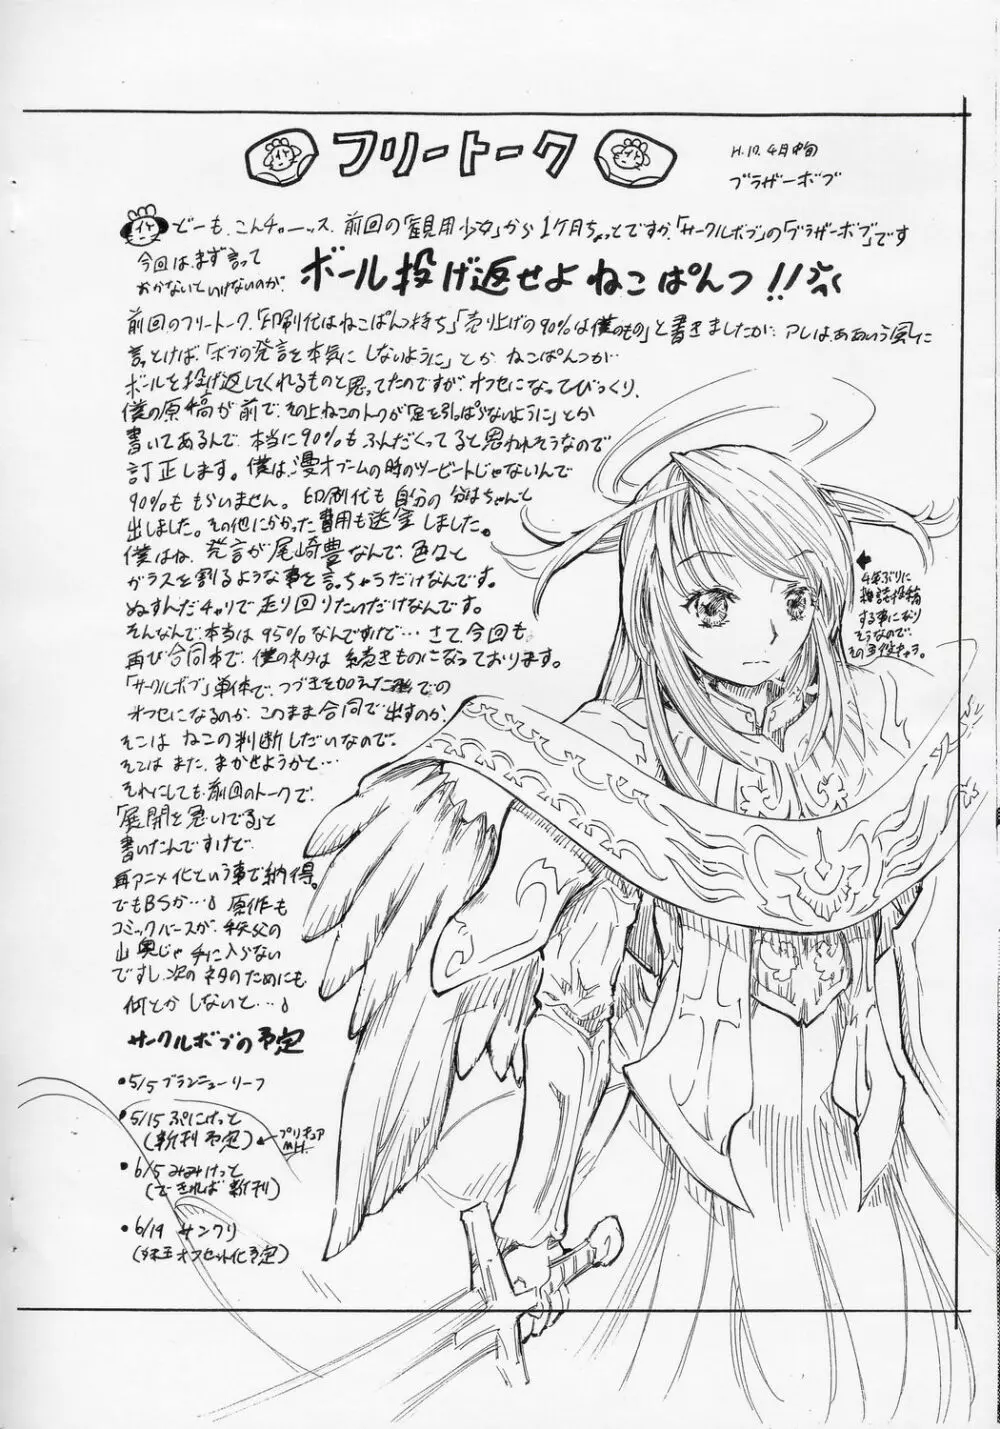 フリートーク
H.17.4月中旬
ブラザーボブ
どーも、こんチャーッス、前回の「観用少女」から1ケ月ちょっとですが、「サークルボブ」の「ブラザーボブ」です
今回は、まず言って
おかないといけないのが、
ボール投げ返せよ ねこぱんつ!!
前回のフリートーク、「印刷代はねこぱんつ持ち」「売り上げの90%は僕のもの」と書きましたが、アレはああいう風に
言っとけば、「ボブの発言を本気にしないように」とか ねこぱんつが…
ボールを投げ返してくれるものと思ってたのですが、オフセになってびっくり、
僕の原稿が前で、その上ねこのトークが「足を引っぱらないように」とか
書いてあるんで、本当に90%もふんだくってると思われそうなので
訂正します。僕は、漫才ブームの時のツービートじゃないんで
90%ももらいません。印刷代も自分の分はちゃんと
出しました。その他にかかった費用も送金しました。
僕はね、発言が尾崎豊なんで、色々と
ガラスを割るような事を言っちゃうだけなんです。
ぬすんだチャリで走り回りたいだけなんです。
そんなんで、本当は95%なんですけど… さて、今回も、
再び合同本で、僕のネタは続きものになっております。
「サークルボブ」単体で、つづきを加えた形での
オフセになるのか、このまま合同で出すのか、
そこは ねこの判断しだいなので、
そこはまた、まかせようかと…
それにしても、前回のトークで、
「展開を急いでる」と
書いたんですけど、
再アニメ化という事で納得。
でもBSか…♩ 原作も
コミックバースが、秩父の
山奥じゃ手に入らない
ですし、次のネタのためにも
何とかしないと…♩
サークルボブの予定
•5/5 ブランニューリーフ
•5/15 ぷにけっと
(新刊予定)←プリキュア
MH
•6/5 みみけっと
(できれば新刊)
•6/19 サンクリ
オフセット化予定)
4年ぶりに
雑誌投稿
する事になり
そうなので、
その主役キャラ。